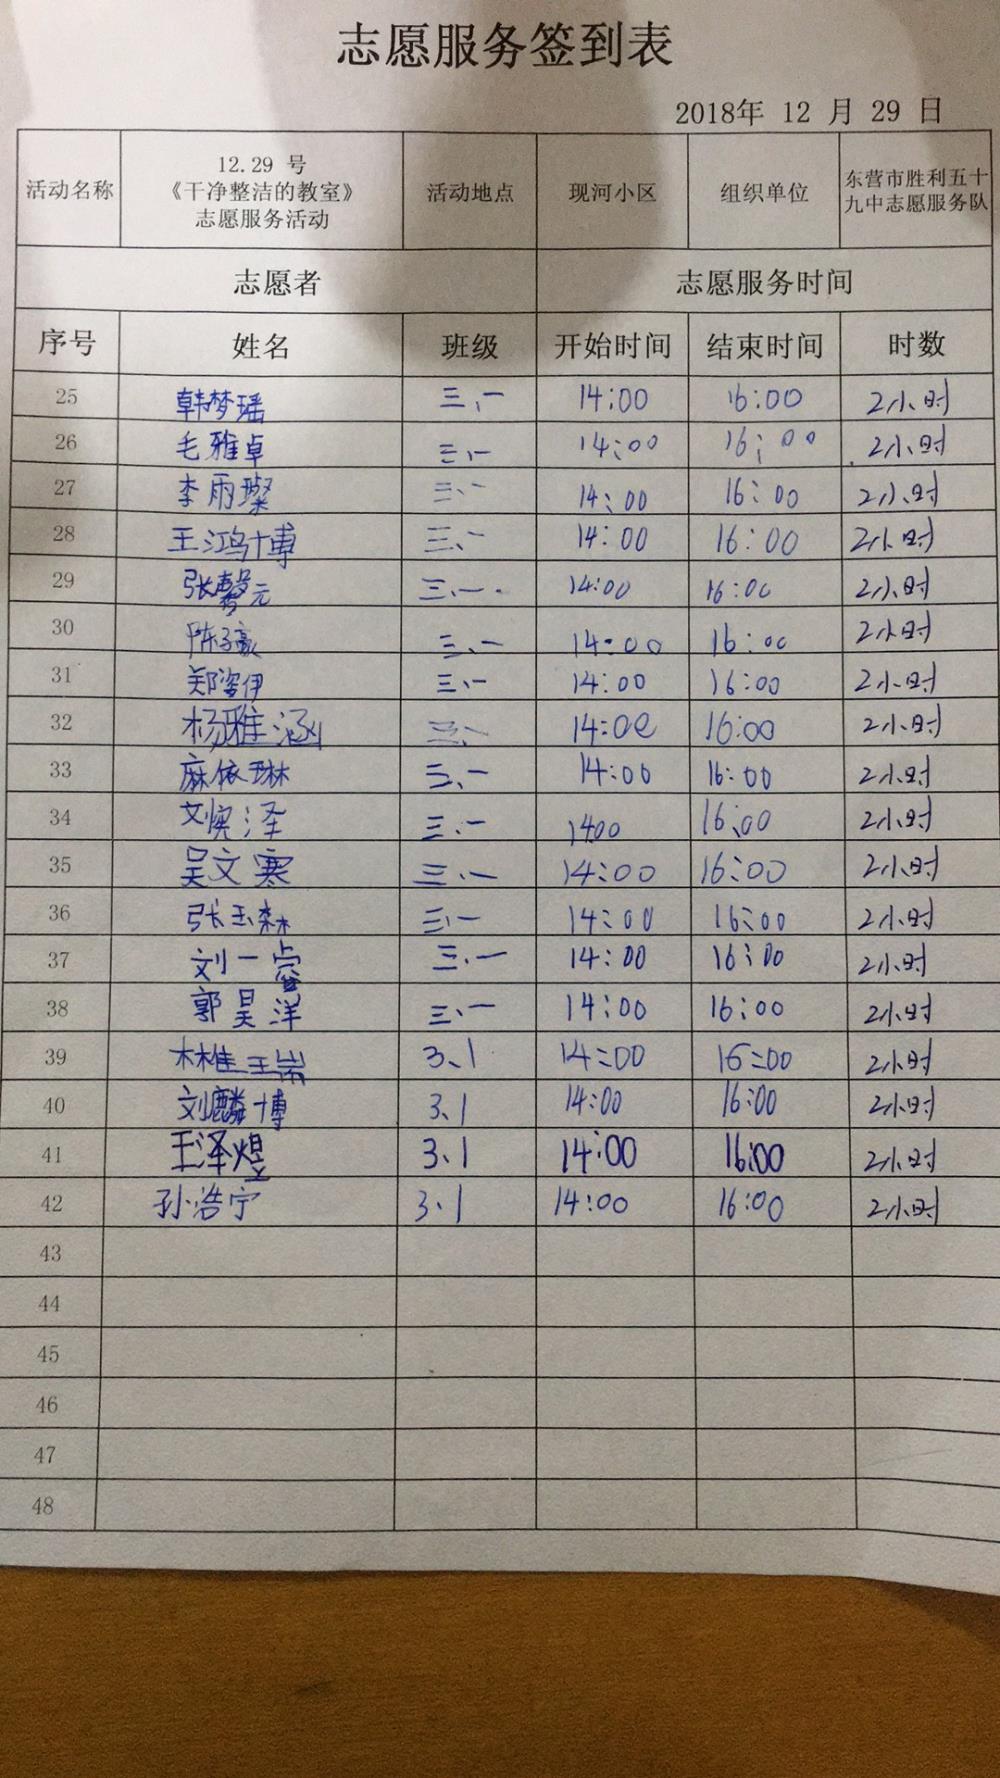 志愿服务签到表
2018年 12 月 29 日
活动名称 12.29 号《干净整洁的教室》志愿服务活动 活动地点 现河小区 组织单位 东营市胜利五十九中志愿服务队
志愿者 志愿服务时间
序号 姓名 班级 开始时间 结束时间 时数
25 韩梦瑶 三.一 14:00 16:00 2小时
26 毛雅卓 三.一 14:00 16:00 2小时
27 李雨璨 三.一 14:00 16:00 2小时
28 王鸿博 三、一 14:00 16:00 2小时
29 张馨元 三.一. 14:00 16:00 2小时
30 陈子豪 三、一 14:00 16:00 2小时
31 郑姿伊 三.一 14:00 16:00 2小时
32 杨雅涵 三、 14:00 16:00 2小时
33 麻依琳 三、一 14:00 16:00 2小时
34 刘焕泽 三.一 1400 16:00 2小时
35 吴文寒 三.一 14:00 16:00 2小时
36 张玉森 三.一 14:00 16:00 2小时
37 刘一睿 三.一 14:00 16:00 2小时
38 郭昊洋 三.一 14:00 16:00 2小时
39 3、1 14:00 16:00 2小时
40 刘麟博 3.1 14:00 16:00 2小时
41 王泽煜 3、1 14:00 16:00 2小时
42 孙浩宁 3.1 14:00 16:00 2小时
43
44
45
46
47
48